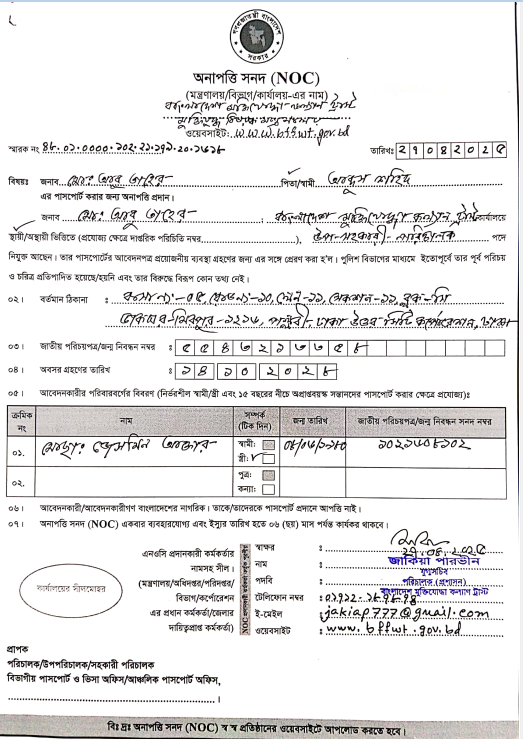 গণপ্রজাতন্ত্রী বাংলাদেশ
সরকার
অনাপত্তি সনদ (NOC)
(মন্ত্রণালয়/বিভাগ/কার্যালয়-এর নাম)
বাংলাদেশ মুক্তিযোদ্ধা কল্যাণ ট্রাস্ট
মুক্তিযুদ্ধ বিষয়ক মন্ত্রণালয়
ওয়েবসাইট: www.bffwt.gov.bd
স্মারক নং তারিখঃ ২১০৪২০২৫
বিষয়: জনাব মোঃ আবু তাহের পিতা/স্বামী
এর পাসপোর্ট করার জন্য অনাপত্তি প্রদান।
জনাব মোঃ আবু তাহের, বাংলাদেশ মুক্তিযোদ্ধা কল্যাণ ট্রাস্ট কার্যালয়ে
স্থায়ী/অস্থায়ী ভিত্তিতে (প্রযোজ্য ক্ষেত্রে দাপ্তরিক পরিচিতি নম্বর), উপ-সহকারী পদে
নিযুক্ত আছেন। তার পাসপোর্টের আবেদনপত্র প্রয়োজনীয় ব্যবস্থা গ্রহণের জন্য এর সঙ্গে প্রেরণ করা হ'ল। পুলিশ বিভাগের মাধ্যমে ইতোপূর্বে তার পূর্ব পরিচয়
ও চরিত্র প্রতিপাদন হয়েছে/হয়নি এবং তার বিরুদ্ধে বিরূপ কোন তথ্য নেই।
০২। বর্তমান ঠিকানা : বাসা নং-০৫, লেন-১১, সেকশন-১১, ব্লক-সি
মিরপুর-১২১৬, পল্লবী, ঢাকা উত্তর সিটি কর্পোরেশন, ঢাকা
০৩। জাতীয় পরিচয়পত্র/জন্ম নিবন্ধন নম্বর :
০৪। অবসর গ্রহণের তারিখ :
০৫। আবেদনকারীর পরিবারবর্গের বিবরণ (নির্ভরশীল স্বামী/স্ত্রী এবং ১৫ বছরের নীচে অপ্রাপ্তবয়স্ক সন্তানদের পাসপোর্ট করার ক্ষেত্রে প্রযোজ্য)ঃ
ক্রমিক নং নাম সম্পর্ক (টিক দিন) জন্ম তারিখ জাতীয় পরিচয়পত্র/জন্ম নিবন্ধন সনদ নম্বর
০১. মোছাঃ জেসমিন আক্তার স্বামী: স্ত্রী:
০২. পুত্র: কন্যা:
০৬। আবেদনকারী/আবেদনকারীগণ বাংলাদেশের নাগরিক। তাকে/তাদেরকে পাসপোর্ট প্রদানে আপত্তি নাই।
০৭। অনাপত্তি সনদ (NOC) একবার ব্যবহারযোগ্য এবং ইস্যুর তারিখ হতে ০৬ (ছয়) মাস পর্যন্ত কার্যকর থাকবে।
কার্যালয়ের সীলমোহর
এনওসি প্রদানকারী কর্মকর্তার
নামসহ সীল।
(মন্ত্রণালয়/অধিদপ্তর/পরিদপ্তর/
বিভাগ/কর্পোরেশন
এর প্রধান কর্মকর্তা/জেলার
দায়িত্বপ্রাপ্ত কর্মকর্তা)
স্বাক্ষর :
নাম : জাকিয়া পারভীন
যুগ্মসচিব
পদবি : পরিচালক (প্রশাসন)
বাংলাদেশ মুক্তিযোদ্ধা কল্যাণ ট্রাস্ট
টেলিফোন নম্বর :
ই-মেইল : jakiap777@gmail.com
ওয়েবসাইট : www.bffwt.gov.bd
প্রাপক
পরিচালক/উপপরিচালক/সহকারী পরিচালক
বিভাগীয় পাসপোর্ট ও ভিসা অফিস/আঞ্চলিক পাসপোর্ট অফিস,
বিঃ দ্রঃ অনাপত্তি সনদ (NOC) স্ব স্ব প্রতিষ্ঠানের ওয়েবসাইটে আপলোড করতে হবে।